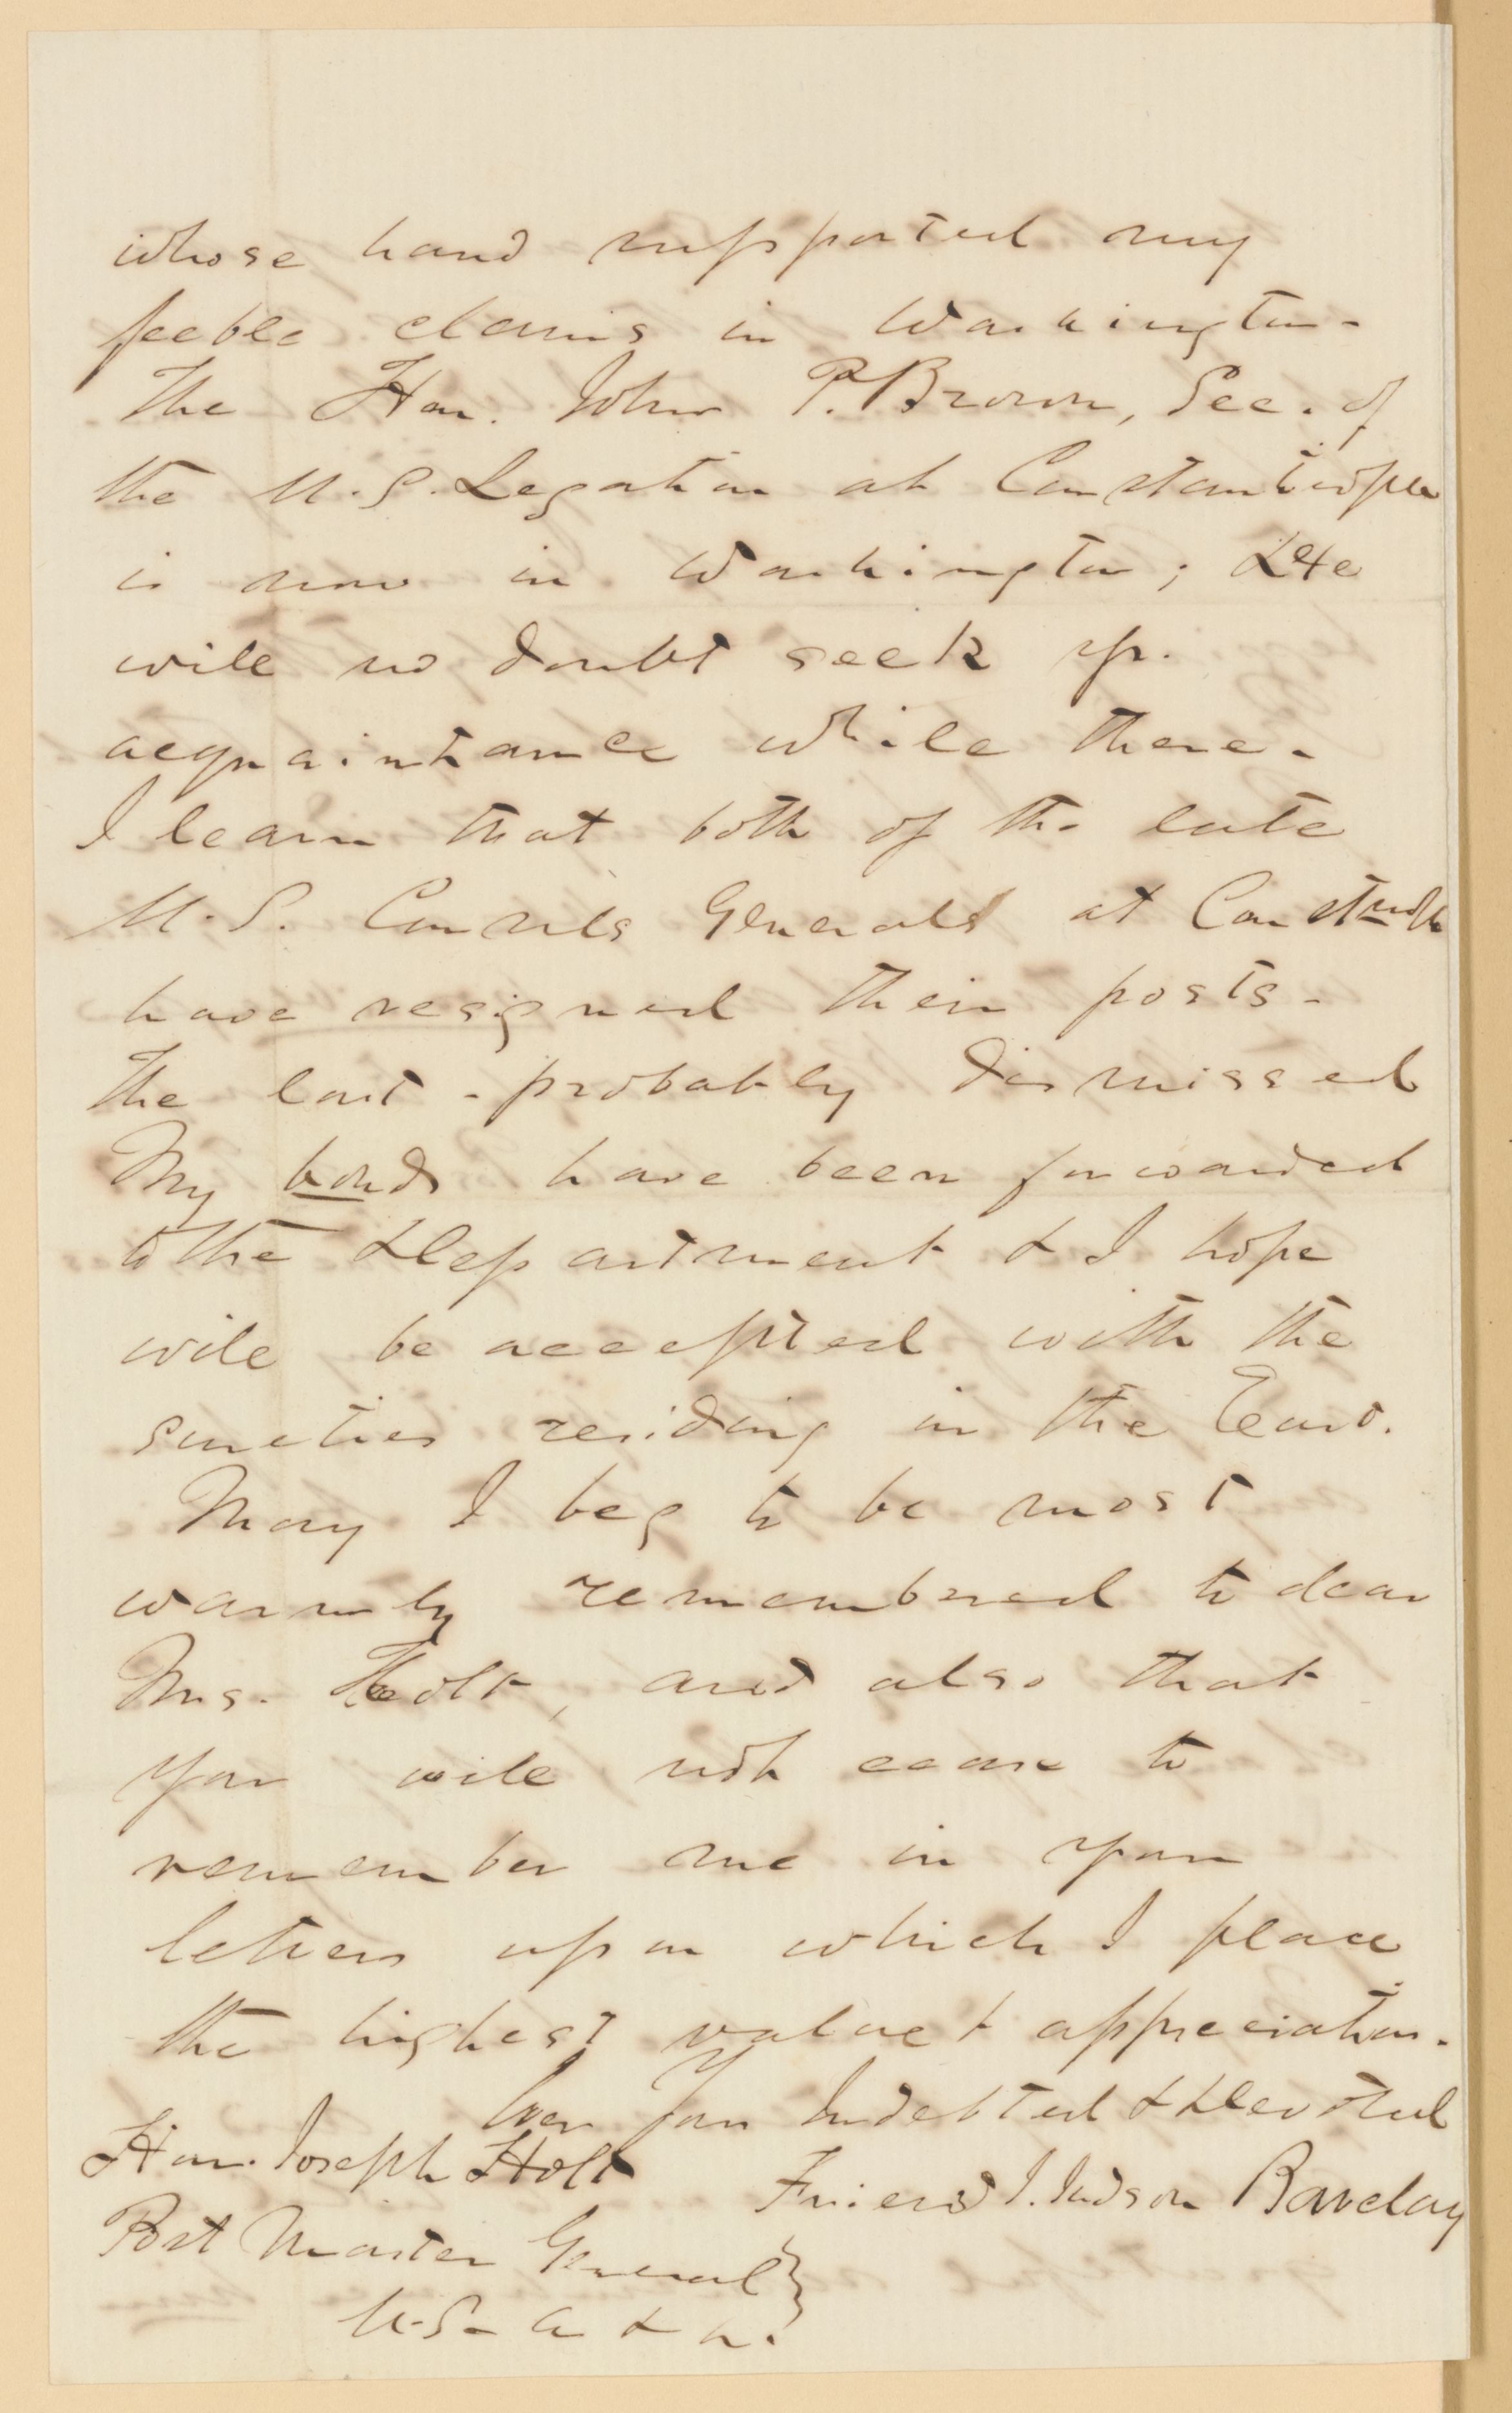 whose hand supported my
feeble claims in Washington -
The Hon. John P. Brown, Sec. of
the U.S. Legation at Constantinople
is now in Washington; He
will no doubt seek yr.
acquaintance while there -
I learn that both of the late
U.S. Consuls Generals at Constanople
have resigned their posts -
The last - probably dismissed
My bonds have been forwarded
to the Department & I hope
will be accepted with the
sureties residing in the East.
May I beg to be most
warmly remembered to dear
Mrs. Holt, and also that
you will not cease to
remember me in your
letters upon which I place
the highest value & appreciation.
Ever Your Indebted & Devoted
Hon. Joseph Holt Friend J. Judson Barclay
Post Master General }
U.S. &